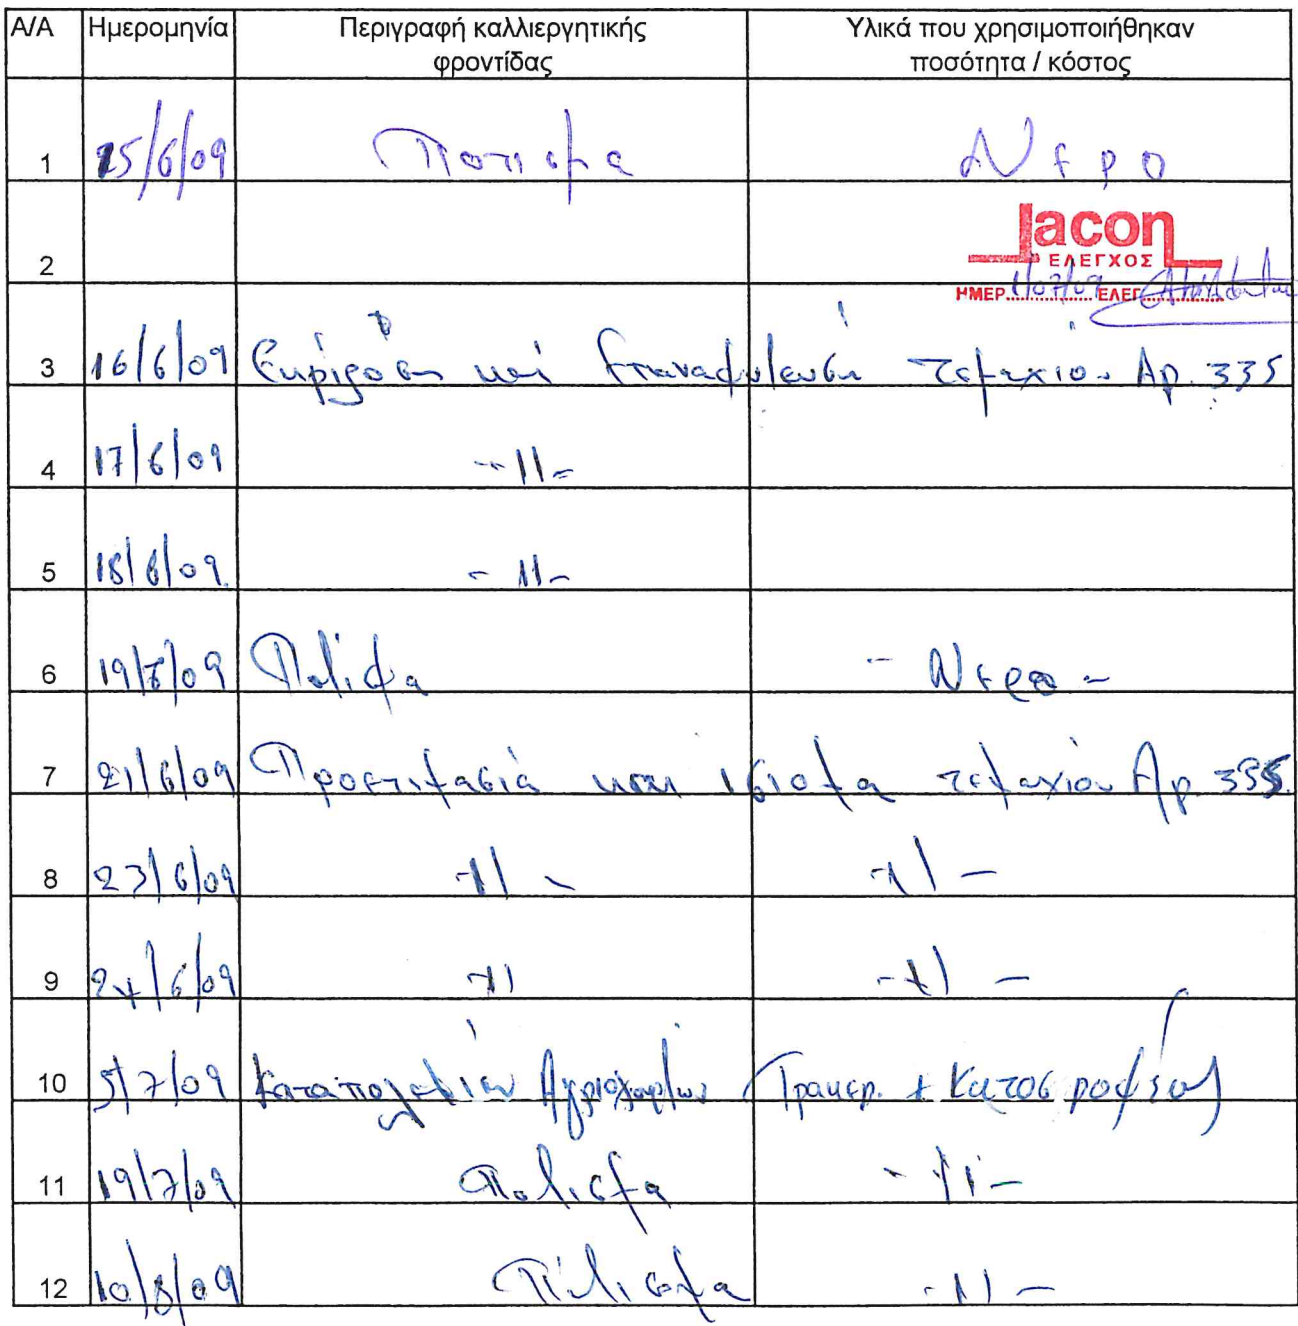 Α/Α Ημερομηνία Περιγραφή καλλιεργητικής φροντίδας Υλικά που χρησιμοποιήθηκαν ποσότητα / κόστος
1 15/6/09 Ποτισμα Νερο
2
lacon
ΕΛΕΓΧΟΣ
ΗΜΕΡ. 1/07/09 ΕΛΕΓ.
3 16/6/09 Εκρίζοση και Επαναφύτευση τεμαχίου Αρ. 335
4 17/6/09 -11-
5 18/6/09 -11-
6 19/6/09 Πότισμα - Νερο -
7 21/6/09 Προετιμασιά και ισιομα τεμαχίου Αρ. 335.
8 23/6/09 -11- -11-
9 24/6/09 -11 -11-
10 5/7/09 Αγριόχορτων
11 19/7/09 Ποτισμα -11-
12 10/8/09 Πότισμα -11-